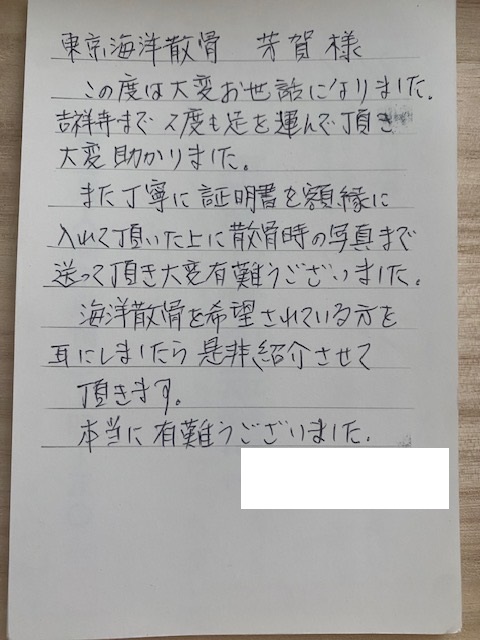 東京海洋散骨 芳賀様
この度は大変お世話になりました。
吉祥寺まで2度も足を運んで頂き
大変助かりました。
また丁寧に証明書を額縁に
入れて頂いた上に散骨時の写真まで
送って頂き大変有難うございました。
海洋散骨を希望されている方を
耳にしましたら是非、紹介させて
頂きます。
本当に有難うございました。